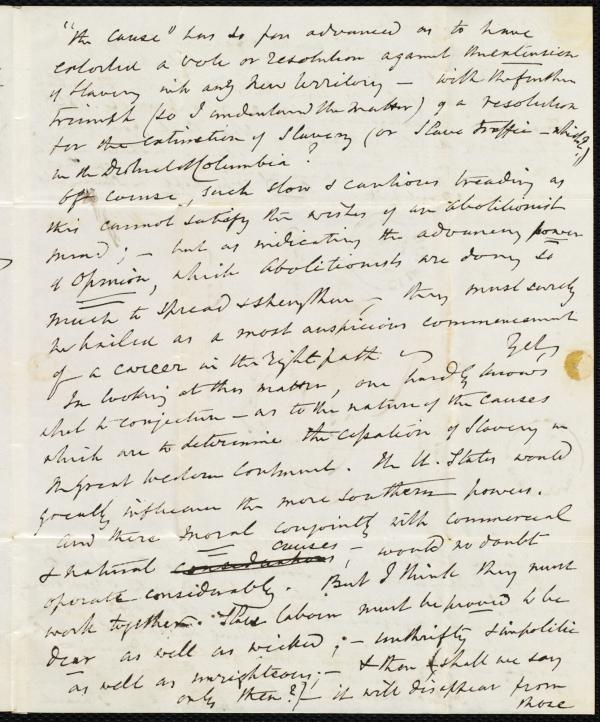 "the cause" has so far advanced as to have
extorted a vote or resolution against the extension
of Slavery into any New Territory – with the further
triumph (so I understand the matter) of a resolution
for the extinction of Slavery (or Slave traffic – which?)
in the District Columbia?
Of course, such slow & cautious treading as
this cannot satisfy the wishes of an abolitionist
mind; – but as indicating the advancing power
of Opinion, which Abolitionists are doing so
much to spread & strengthen – they must surely
be hailed as a most auspicious commencement
of a career in the right path
In looking at this matter, one hardly knows
what to conjecture – as to the nature of the causes
which are to determine the cessation of Slavery in
the great Western Continent. The U. States would
greatly influence the more Southern powers.
And there moral conjointly with commercial
& natural causes, – would no doubt
operate considerably. But I think they must
work together. Slave labour must be proved to be
dear as well as wicked; – unthrifty & impolitic
as well as unrighteous; – & then (shall we say
only then?) – it will disappear from
those